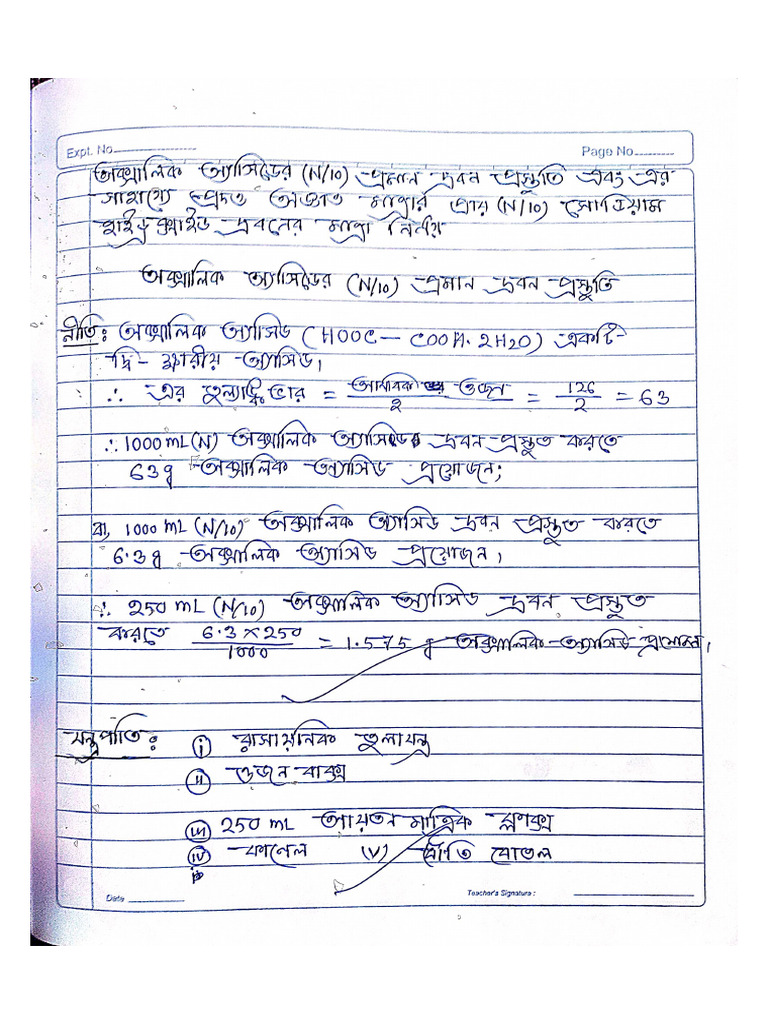 Expt. No.
Page No.
অক্সালিক অ্যাসিডের (N/10) প্রমান দ্রবন প্রস্তুতি এবং এর
সাহায্যে প্রদত্ত অজ্ঞাত মাত্রার প্রায় (N/10) সোডিয়াম
হাইড্রক্সাইড দ্রবনের মাত্রা নির্নয়
অক্সালিক অ্যাসিডের (N/10) প্রমান দ্রবন প্রস্তুতি
নীতি: অক্সালিক অ্যাসিড (HOOC – COOH. 2H2O) একটি
দ্বি-ক্ষারীয় অ্যাসিড।
∴ এর তুল্যাঙ্কভার = আনবিক ওজন / 2 = 126 / 2 = 63
∴ 1000 mL (N) অক্সালিক অ্যাসিডের দ্রবন প্রস্তুত করতে
63g অক্সালিক অ্যাসিড প্রয়োজন;
বা, 1000 mL (N/10) অক্সালিক অ্যাসিড দ্রবন প্রস্তুত করতে
6.3g অক্সালিক অ্যাসিড প্রয়োজন।
∴ 250 mL (N/10) অক্সালিক অ্যাসিড দ্রবন প্রস্তুত
করতে 6.3 × 250 / 1000 = 1.575 g অক্সালিক অ্যাসিড প্রয়োজন।
যন্ত্রপাতি: (i) রাসায়নিক তুলাযন্ত্র
(ii) ওজন বাক্স
(iii) 250 mL আয়তন মাত্রিক ফ্লাক্স
(iv) ফানেল (v) ধৌতি বোতল
Date
Teacher's Signature :